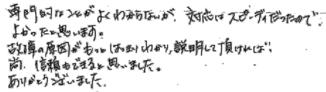 専門的なことがよくわからないが、対応はスピーディだったので
よかったと思います。
故障の原因がもっとはっきりわかり、説明して頂ければ
尚、信頼もできると思いました。
ありがとうございました。